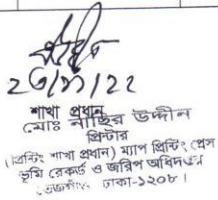 ২৫/৭/২২
শাখা প্রধান
মোঃ নাছির উদ্দীন
প্রিন্টার
(প্রিন্টিং শাখা প্রধান) ম্যাপ প্রিন্টিং প্রেস
ভূমি রেকর্ড ও জরিপ অধিদপ্তর
তেজগাঁও, ঢাকা-১২০৮।